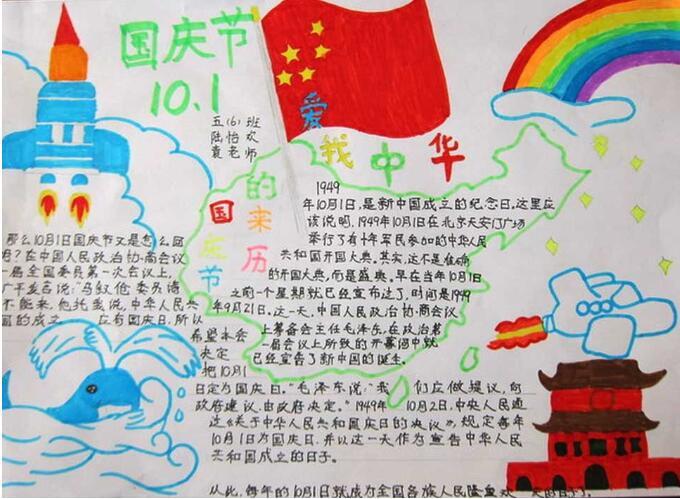 国庆节
10.1
五(6)班
陆怡欢
袁老师
爱我中华
国庆节的来历
1949
年10月1日,是新中国成立的纪念日。这里应
该说明,1949年10月1日在北京天安门广场
举行了有十年军民参加的中华人民
共和国开国大典。其实,这不是准确
的开国大典,而是盛典。早在当年10月1日
之前一个星期就已经宣布过了,时间是1949
年9月21日。这一天,中国人民政治协商会议
上筹备会主任毛泽东,在政治第
一届会议上所致的开幕语中就
已经宣告了新中国的诞生。
那么10月1日国庆节又是怎么回
用?在中国人民政治协商会议
一届全国委员第一次会议上,
广平发言说:"马叙伦委员请
不能来,他托我说,中华人民共
国的成立 应有国庆日,所以
希望本会
决定
把10月1
日定为国庆日。"毛泽东说:"我们应做提议,向
政府建议,由政府决定。"1949年10月2日,中央人民通
过《关于中华人民共和国庆日的决议》,规定每年
10月1日为国庆日,并以这一天作为宣告中华人民
共和国成立的日子。
从此,每年的10月1日就成为全国各族人民隆重欢